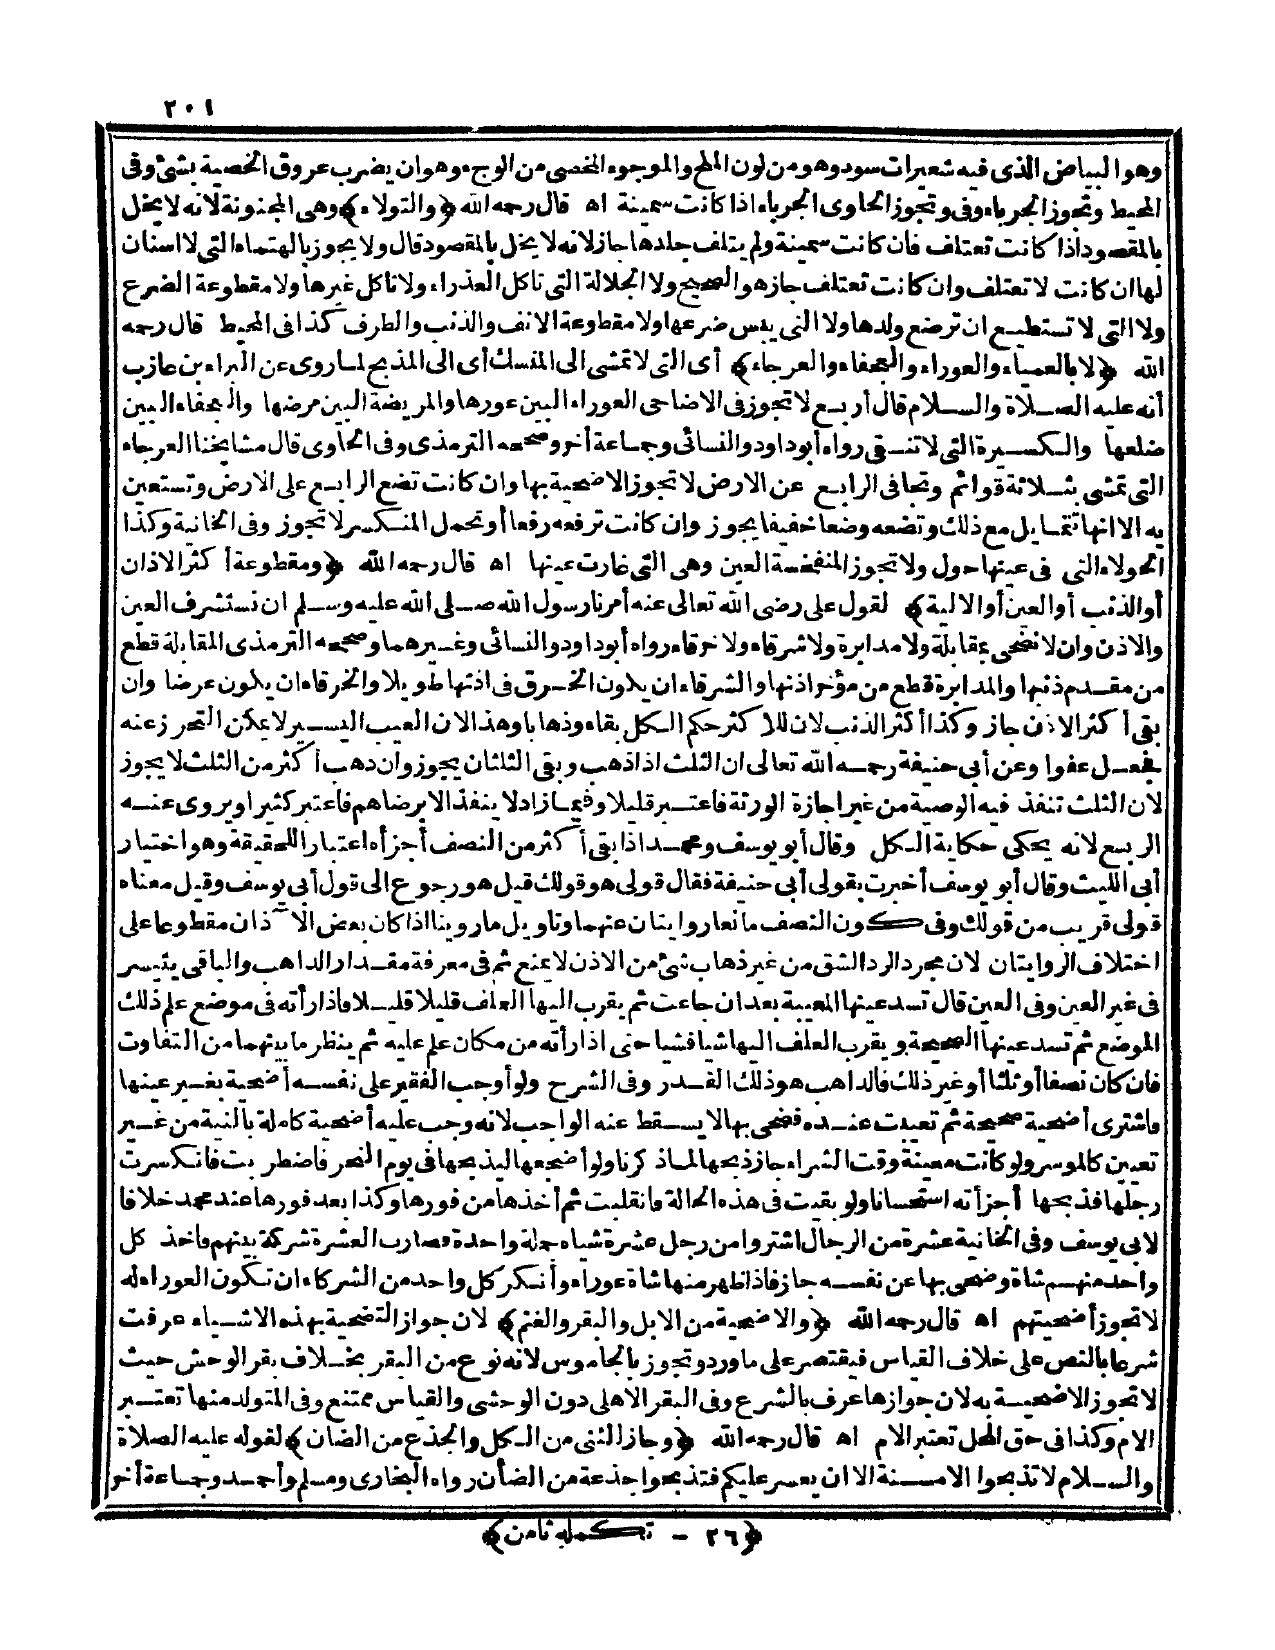 ٢٠١
وهو البياض الذى فيه شعيرات سود وهو من لون الملح والموجوء الخصى من الوجء وهو ان يضرب عروق الخصية بشئ وفى
المحيط وتجوز الجرباء وفى وتجوز الحاوى الجرباء اذا كانت سمينة اه قال رحمه الله ﴿والتولاء﴾ وهى المجنونة لانه لا يخل
بالمقصود اذا كانت تعتلف فان كانت سمينة ولم يتلف جلدها جاز لانه لا يخل بالمقصود قال ولا يجوز بالهتماء التى لا اسنان
لها ان كانت لا تعتلف وان كانت تعتلف جاز هو الصحيح ولا الجلالة التى تاكل العذراء ولا تاكل غيرها ولا مقطوعة الضرع
ولا التى لا تستطيع ان ترضع ولدها ولا التى يبس ضرعها ولا مقطوعة الانف والذنب والطرف كذا فى المحيط قال رحمه
الله ﴿لا بالعمياء والعوراء والعجفاء والعرجاء﴾ أى التى لا تمشى الى المنسك أى الى المذبح لما روى عن البراء بن عازب
أنه عليه الصلاة والسلام قال أربع لا تجوز فى الاضاحى العوراء البين عورها والمريضة البين مرضها والعجفاء البين
ضلعها والكسيرة التى لا تنقى رواه أبوداود والنسائى وجماعة أخر وصححه الترمذى وفى الحاوى قال مشايخنا العرجاء
التى تمشى بثلاثة قوائم وتجافى الرابع عن الارض لا تجوز الاضحية بها وان كانت تضع الرابع على الارض وتستعين
به الا انها تتمايل مع ذلك وتضعه وضعا خفيفا يجوز وان كانت ترفعه رفعا أو تحمل المنكسر لا تجوز وفى الخانية وكذا
الحولاء التى فى عينها حول ولا تجوز المنفضة العين وهى التى غارت عينها اه قال رحمه الله ﴿ومقطوعة أكثر الاذان
أو الذنب أو العين أو الالية﴾ لقول على رضى الله تعالى عنه أمرنا رسول الله صلى الله عليه وسلم ان نستشرف العين
والاذن وان لا نضحى بمقابلة ولا مدابرة ولا شرقاء ولا خرقاء رواه أبوداود والنسائى وغيرهما وصححه الترمذى المقابلة قطع
من مقدم ذنبها والمدابرة قطع من مؤخر اذنها والشرقاء ان يكون الخرق فى اذنها طويلا والخرقاء ان يكون عرضا وان
بقى أكثر الاذن جاز وكذا أكثر الذنب لان للاكثر حكم الكل بقاء وذهابا وهذا لان العيب اليسير لا يمكن التحرز عنه
فجعل عفوا وعن أبى حنيفة رحمه الله تعالى ان الثلث اذا ذهب وبقى الثلثان يجوز وان ذهب أكثر من الثلث لا يجوز
لان الثلث تنفذ فيه الوصية من غير اجازة الورثة فاعتبر قليلا وفيما زاد لا ينفذ الا برضاهم فاعتبر كثيرا ويروى عنه
الربع لانه يحكى حكاية الكل وقال أبو يوسف ومحمد اذا بقى أكثر من النصف أجزأه اعتبارا للحقيقة وهو اختيار
أبى الليث وقال أبو يوسف أخبرت بقولى أبى حنيفة فقال قولى هو قولك قيل هو رجوع الى قول أبى يوسف وقيل معناه
قولى قريب من قولك وفى كون النصف مانعا روايتان عنهما وتاويل ما روينا اذا كان بعض الآذان مقطوعا على
اختلاف الروايتان لان مجرد الرد الشق من غير ذهاب شئ من الاذن لا يمنع ثم فى معرفة مقدار الذاهب والباقى يتيسر
فى غير العين وفى العين قال تسد عينها المعيبة بعد ان جاعت ثم يقرب اليها العلف قليلا قليلا فاذا رأته فى موضع علم ذلك
الموضع ثم تسد عينها الصحيحة ويقرب العلف اليها شيا فشيا حتى اذا رأته من مكان علم عليه ثم ينظر ما بينهما من التفاوت
فان كان نصفا أو ثلثا أو غير ذلك فالذاهب هو ذلك القدر وفى الشرح ولو أوجب الفقير على نفسه أضحية بغير عينها
فاشترى أضحية صحيحة ثم تعيبت عنده فضحى بها لا يسقط عنه الواجب لانه وجب عليه أضحية كاملة بالنية من غير
تعيين كالموسر ولو كانت معينة وقت الشراء جاز ذبحها لما ذكرنا ولو أضجعها ليذبحها فى يوم النحر فاضطربت فانكسرت
رجلها فذبحها أجزأته استحسانا ولو بقيت فى هذه الحالة فانقلبت ثم أخذها من فورها وكذا بعد فورها عند محمد خلافا
لابى يوسف وفى الخانية عشرة من الرجال اشتروا من رجل عشرة شياه جملة واحدة فصارت العشرة شركة بينهم فاخذ كل
واحد منهم شاة وضحى بها عن نفسه جاز فاذا ظهر منها شاة عوراء وأنكر كل واحد من الشركاء ان تكون العوراء له
لا تجوز أضحيتهم اه قال رحمه الله ﴿والاضحية من الابل والبقر والغنم﴾ لان جواز التضحية بهذه الاشياء عرفت
شرعا بالنص على خلاف القياس فيقتصر على ما ورد وتجوز بالجاموس لانه نوع من البقر بخلاف بقر الوحش حيث
لا تجوز الاضحية به لان جوازها عرف بالشرع وفى البقر الاهلى دون الوحشى والقياس ممتنع وفى المتولد منها تعتبر
الام وكذا فى حق الحل تعتبر الام اه قال رحمه الله ﴿وجاز الثنى من الكل والجذع من الضان﴾ لقوله عليه الصلاة
والسلام لا تذبحوا الا مسنة الا ان يعسر عليكم فتذبحوا جذعة من الضأن رواه البخارى ومسلم وأحمد وجماعة أخر
﴿٢٦ - تكمله ثامن﴾